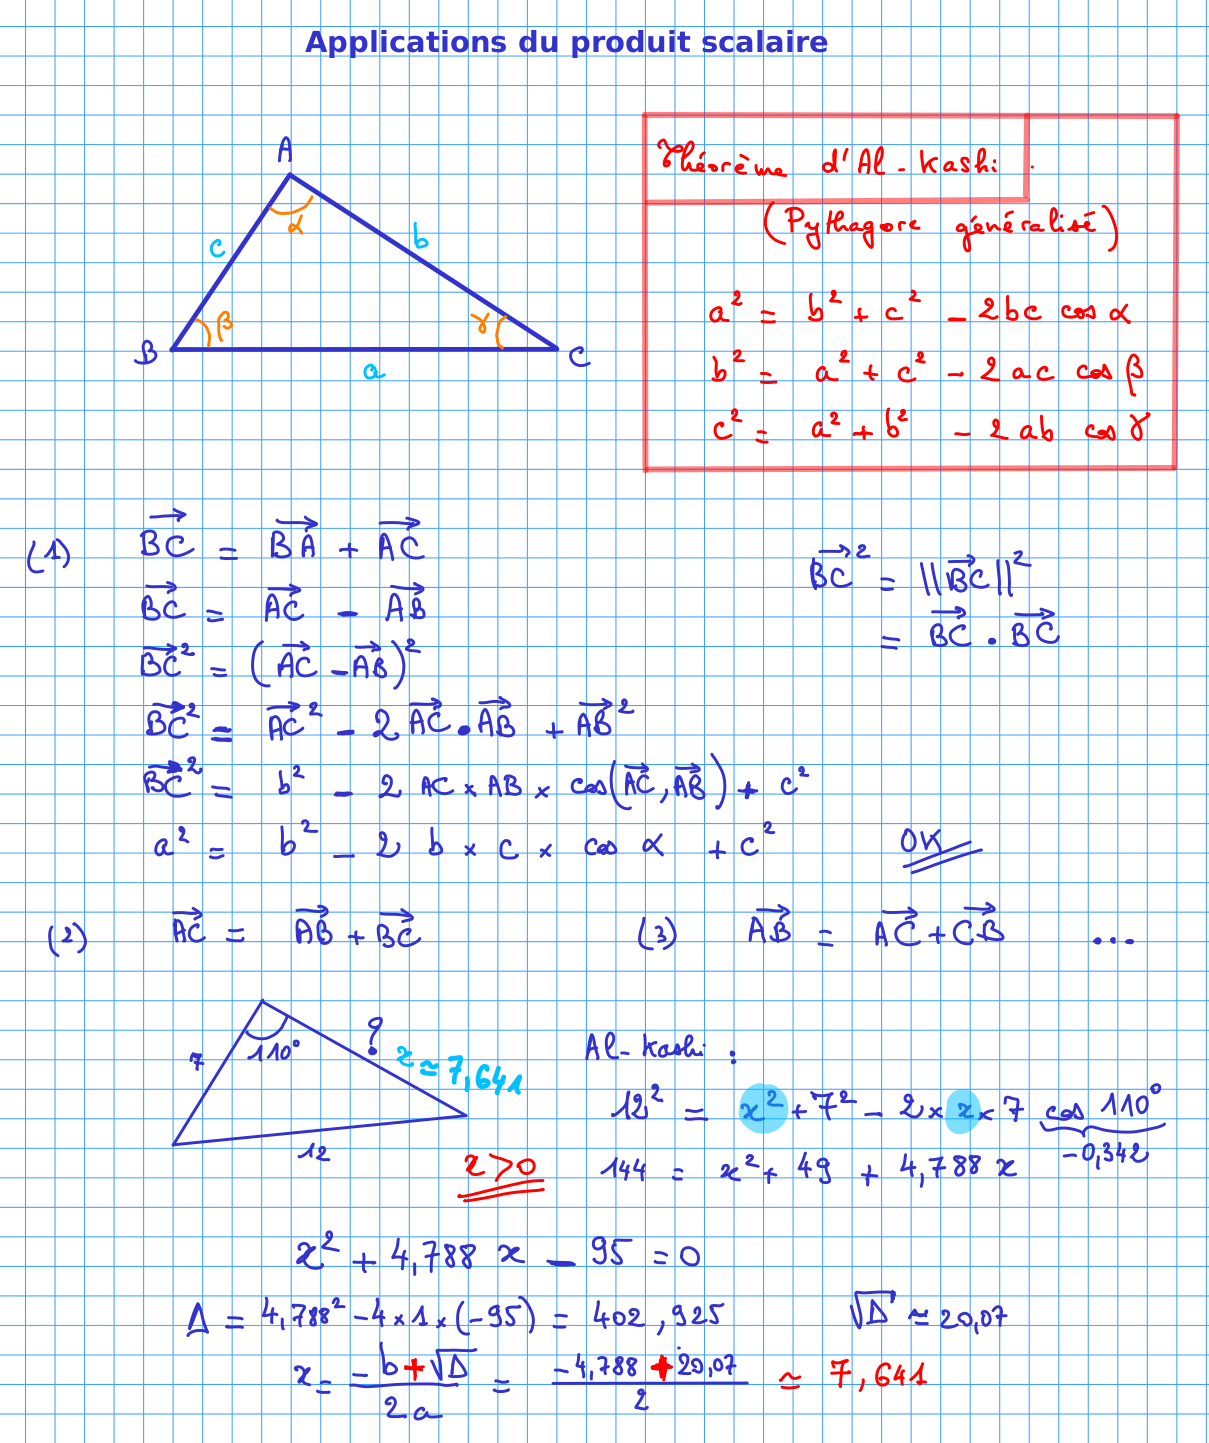 Applications du produit scalaire
A
α
c
b
β
γ
B
C
a
Théorème d'Al-Kashi.
(Pythagore généralisé)
a² = b² + c² - 2bc cos α
b² = a² + c² - 2ac cos β
c² = a² + b² - 2ab cos γ
(1) BC⃗ = BA⃗ + AC⃗
BC⃗ = AC⃗ - AB⃗
BC⃗² = (AC⃗ - AB⃗)²
BC⃗² = AC⃗² - 2 AC⃗ • AB⃗ + AB⃗²
BC⃗² = b² - 2 AC × AB × cos(AC⃗, AB⃗) + c²
a² = b² - 2 b × c × cos α + c²
OK
BC⃗² = ||BC⃗||²
= BC⃗ • BC⃗
(2) AC⃗ = AB⃗ + BC⃗
(3) AB⃗ = AC⃗ + CB⃗ ...
7
110°
?
x ≃ 7,641
12
x > 0
Al-Kashi :
12² = x² + 7² - 2 × x × 7 cos 110°
-0,342
144 = x² + 49 + 4,788 x
x² + 4,788 x - 95 = 0
Δ = 4,788² - 4 × 1 × (-95) = 402,925
√Δ ≃ 20,07
x = (-b + √Δ) / 2a = (-4,788 + 20,07) / 2 ≃ 7,641